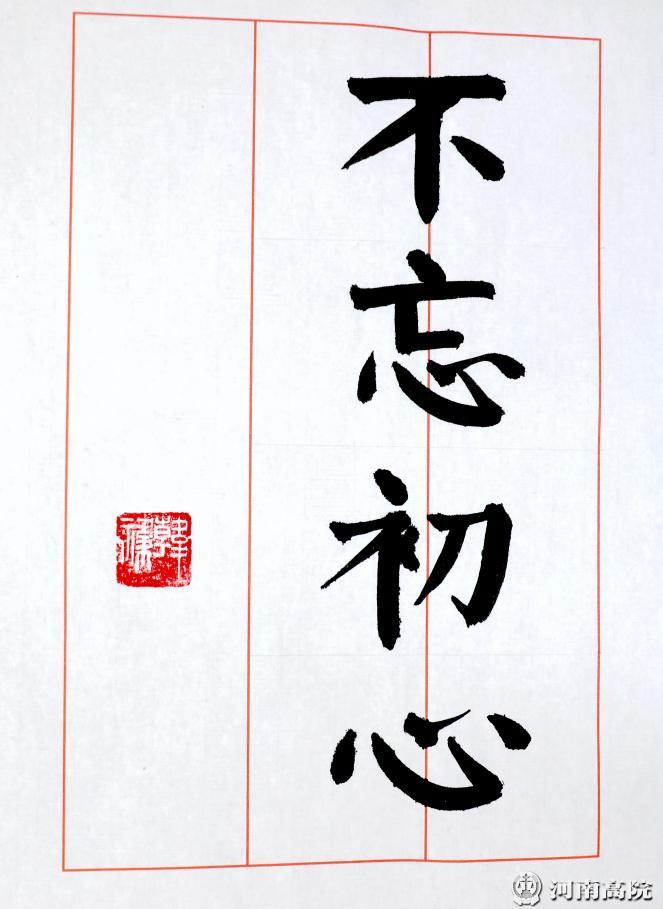 不忘初心
河南高院